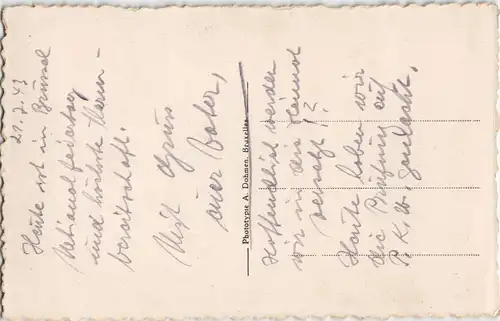 21.7.43
Heute ist in Brüssel
Nationalfeiertag
und höchste Alarm-
bereitschaft.
Mit Gruss
euer Vater,
Phototypie A. Dohmen, Bruxelles
Hoffendlich werden
wir in die Heimat
versetzt!?
Heute haben wir
die Prüfung auf
P.K.W. gemacht.